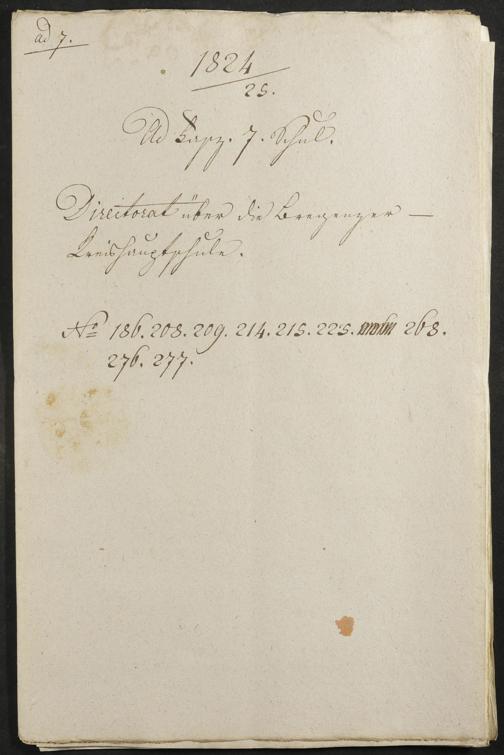 ad 7.
1824
25.
Ad Fasz. 7. Schul.
Directorat über die Bregenzer —
Kreishauptschule.
No 186. 208. 209. 214. 215. 225. 268.
276. 277.